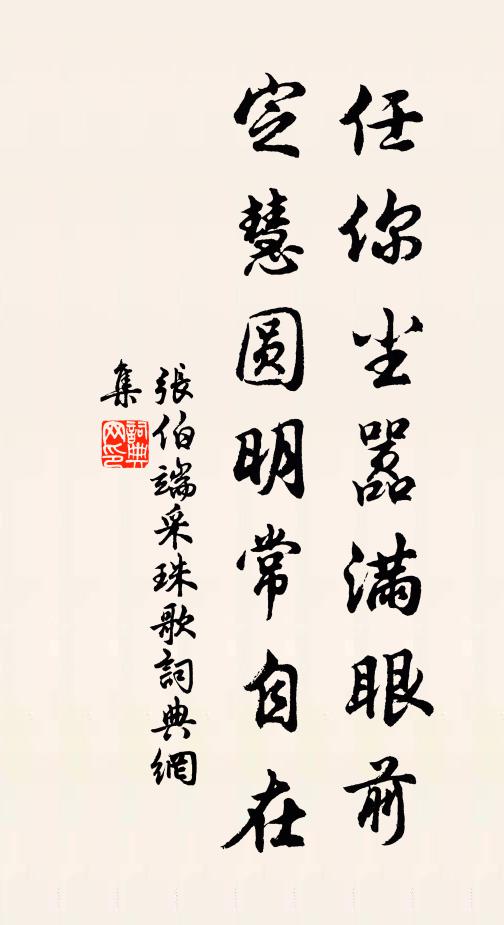 任你尘嚣满眼前
定慧圆明常自在
張伯端采珠歌詞典網
集
詞典网印